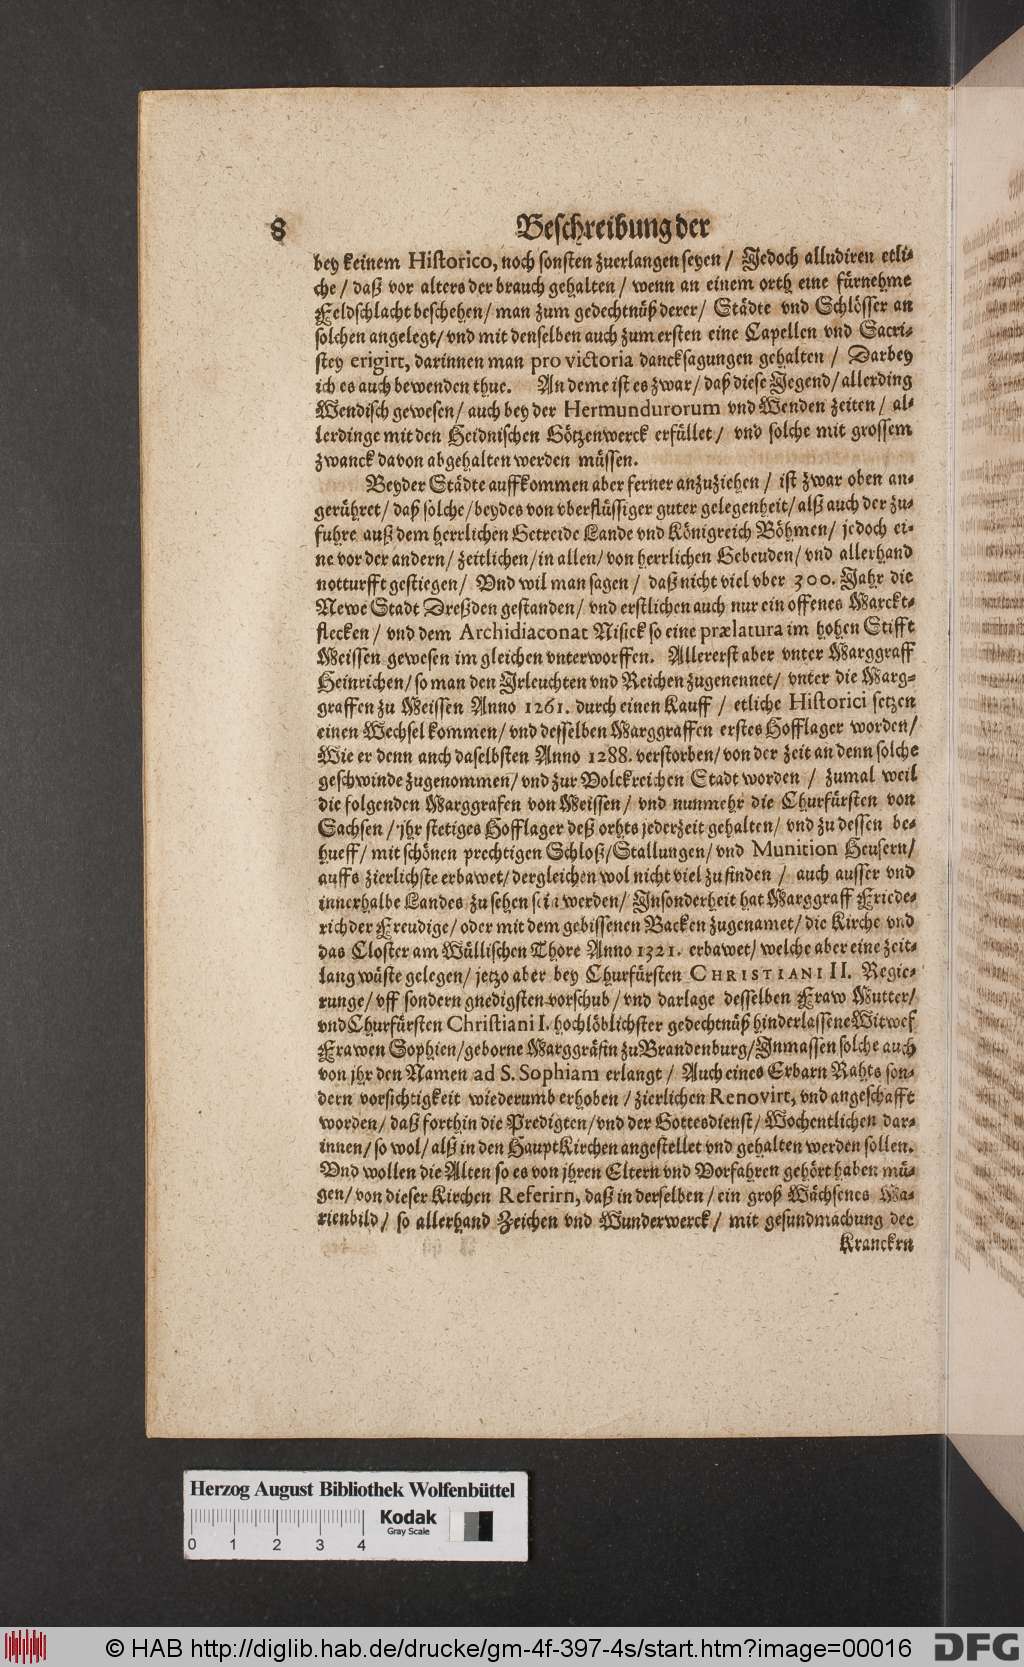 8 Beschreibung der
bey keinem Historico, noch sonsten zuerlangen seyen / Jedoch alludiren etli-
che / daß vor alters der brauch gehalten / wenn an einem orth eine fürnehme
Feldschlacht beschehen / man zum gedechtnüß derer / Städte vnd Schlösser an
solchen angelegt / vnd mit denselben auch zum ersten eine Capellen vnd Sacri-
stey erigirt, darinnen man pro victoria dancksagungen gehalten / Darbey
ich es auch bewenden thue. An deme ist es zwar / daß diese Jegend / allerding
Wendisch gewesen / auch bey der Hermundurorum vnd Wenden zeiten / al-
lerdinge mit den Heidnischen Götzenwerck erfüllet / vnd solche mit grossem
zwanck davon abgehalten werden müssen.
Beyder Städte auffkommen aber ferner anzuziehen / ist zwar oben an-
gerühret / daß solche / beydes von vberflüssiger guter gelegenheit / alß auch der zu-
fuhre auß dem herrlichen Getreide Lande vnd Königreich Böhmen / jedoch ei-
ne vor der andern / zeitlichen / in allen / von herrlichen Gebeuden / vnd allerhand
notturfft gestiegen / Vnd wil man sagen / daß nicht viel vber 300. Jahr die
Newe Stadt Dreßden gestanden / vnd erstlichen auch nur ein offenes Marckt-
flecken / vnd dem Archidiaconat Nisick so eine prælatura im hohen Stifft
Meissen gewesen im gleichen vnterworffen. Allererst aber vnter Marggraff
Heinrichen / so man den Jrleuchten vnd Reichen zugenennet / vnter die Marg-
graffen zu Meissen Anno 1261. durch einen Kauff / etliche Historici setzen
einen Wechsel kommen / vnd desselben Marggraffen erstes Hofflager worden /
Wie er denn auch daselbsten Anno 1288. verstorben / von der zeit an denn solche
geschwinde zugenommen / vnd zur Volckreichen Stadt worden / zumal weil
die folgenden Marggrafen von Meissen / vnd nunmehr die Churfürsten von
Sachsen / jhr stetiges Hofflager deß orhts jederzeit gehalten / vnd zu dessen be-
hueff / mit schönen prechtigen Schloß / Stallungen / vnd Munition Heusern /
auffs zierlichste erbawet / dergleichen wol nicht viel zu finden / auch ausser vnd
innerhalbe Landes zu sehen sein werden / Jnsonderheit hat Marggraff Friede-
rich der Freudige / oder mit dem gebissenen Backen zugenamet / die Kirche vnd
das Closter am Wüllischen Thore Anno 1321. erbawet / welche aber eine zeit-
lang wüste gelegen / jetzo aber bey Churfürsten CHRISTIANI II. Regie-
runge / vff sondern gnedigsten vorschub / vnd darlage desselben Fraw Mutter /
vnd Churfürsten Christiani I. hochlöblichster gedechtnüß hinderlassene Witwef
Frawen Sophien / geborne Marggräfin zu Brandenburg / Jnmassen solche auch
von jhr den Namen ad S. Sophiam erlangt / Auch eines Erbarn Rahts son-
dern vorsichtigkeit wiederumb erhoben / zierlichen Renovirt, vnd angeschafft
worden / daß forthin die Predigten / vnd der Gottesdienst / Wochentlichen dar-
innen / so wol / alß in den HauptKirchen angestellet vnd gehalten werden sollen.
Vnd wollen die Alten so es von jhren Eltern vnd Vorfahren gehört haben mü-
gen / von dieser Kirchen Referirn, daß in derselben / ein groß Wächsenes Ma-
rienbild / so allerhand Zeichen vnd Wunderwerck / mit gesundmachung der
Kranckrn
Herzog August Bibliothek Wolfenbüttel
Kodak
Gray Scale
0 1 2 3 4
© HAB http://diglib.hab.de/drucke/gm-4f-397-4s/start.htm?image=00016
DFG